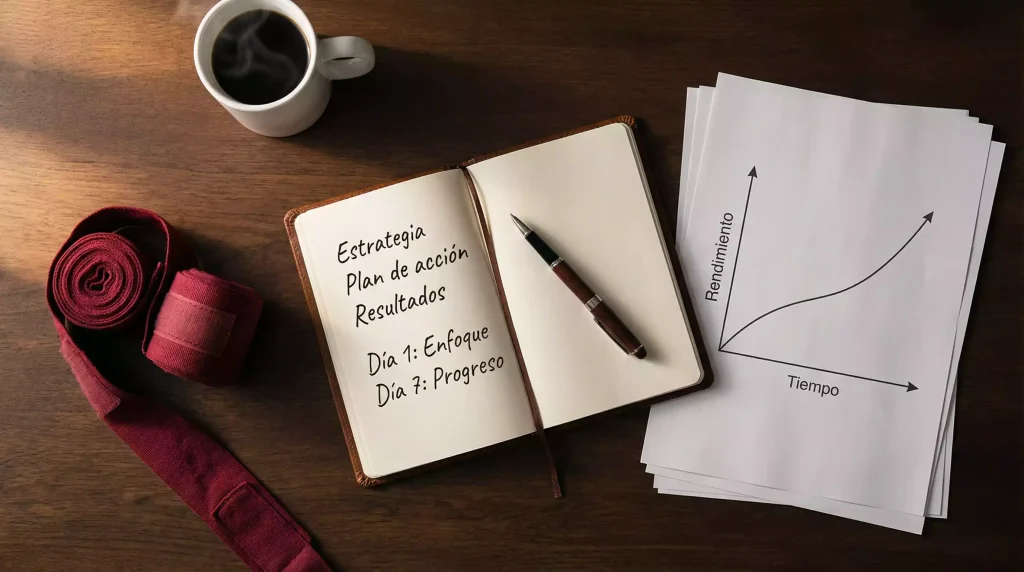 Estrategia
Plan de acción
Resultados
Día 1: Enfoque
Día 7: Progreso
Rendimiento
Tiempo